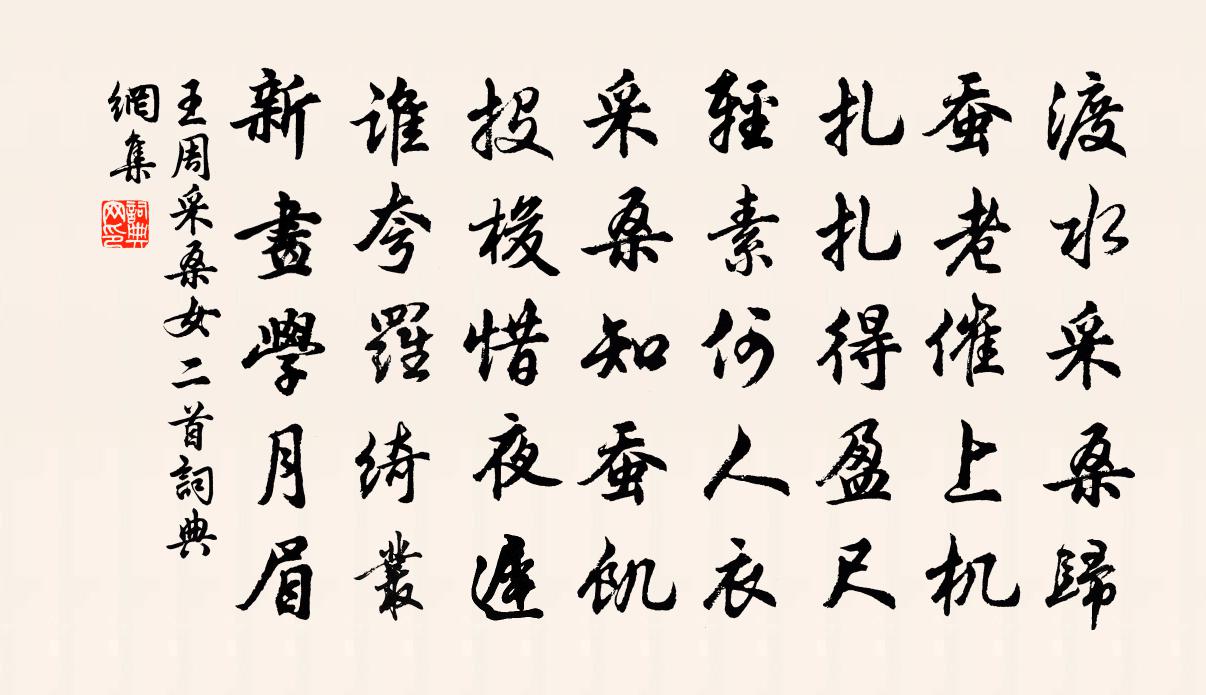 渡水采桑歸
蚕老催上机
扎扎得盈尺
輕素何人衣
采桑知蚕飢
投梭惜夜遲
誰夸羅綺叢
新畫學月眉
王周采桑女二首詞典
網集
詞典
网印